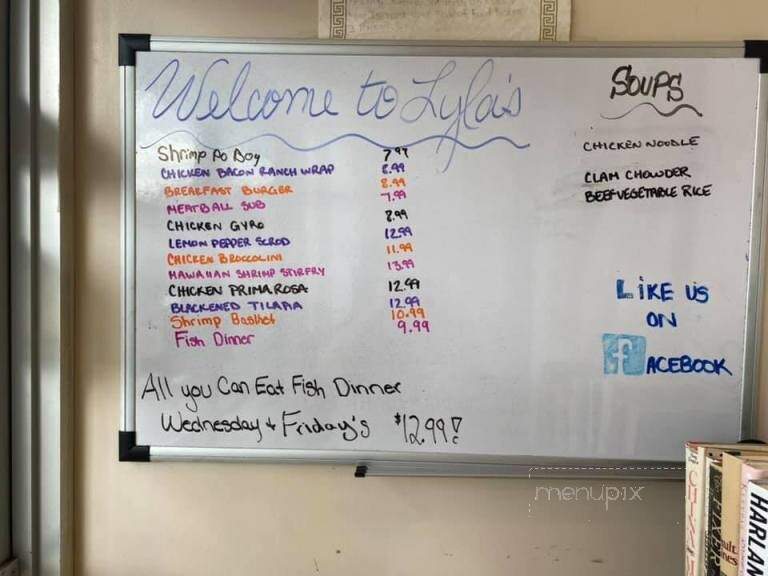 Welcome to Lyla's
Shrimp Po Boy 7.99
CHICKEN BACON RANCH WRAP 8.99
BREAKFAST BURGER 8.99
MEATBALL SUB 7.99
CHICKEN GYRO 8.99
LEMON PEPPER SCROD 12.99
CHICKEN BROCCOLINI 11.99
HAWAIIAN SHRIMP STIRFRY 13.99
CHICKEN PRIMAROSA 12.99
BLACKENED TILAPIA 12.99
Shrimp Basket 10.99
Fish Dinner 9.99
All you Can Eat Fish Dinner
Wednesday + Friday's $12.99!
SOUPS
CHICKEN NOODLE
CLAM CHOWDER
BEEF VEGETABLE RICE
LIKE US
ON
fACEBOOK
menupix
FIXER
HARLAN